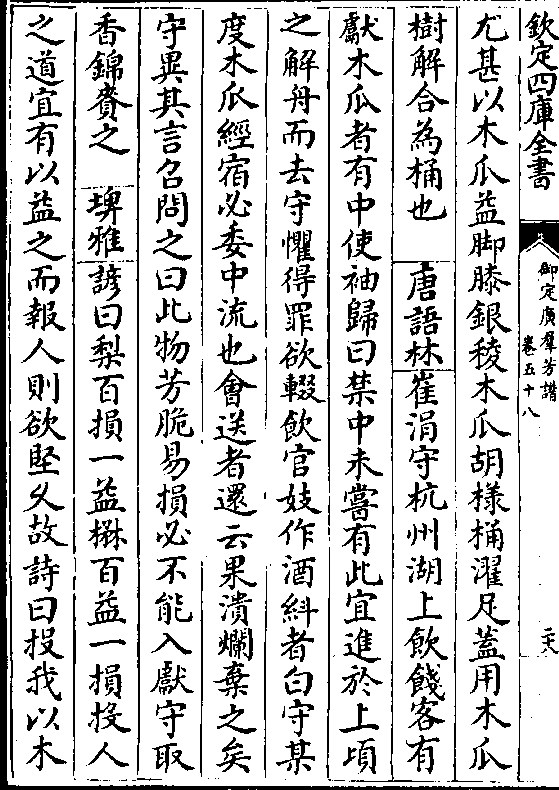 欽定四庫全書
御定廣羣芳譜
卷五十八
二六
尤甚以木瓜益脚膝銀稜木瓜胡様桶濯足蓋用木瓜
樹解合為桶也　唐語林　崔涓守杭州湖上飲餞客有
獻木瓜者有中使袖歸曰禁中未嘗有此宜進於上頃
之解舟而去守懼得罪欲輟飲官妓作酒紏者白守某
度木瓜經宿必委中流也會送者還云果潰爛棄之矣
守異其言召問之曰此物芳脆易損必不能入獻守取
香錦賚之　埤雅　諺曰梨百損一益楙百益一損投人
之道宜有以益之而報人則欲堅乆故詩曰投我以木